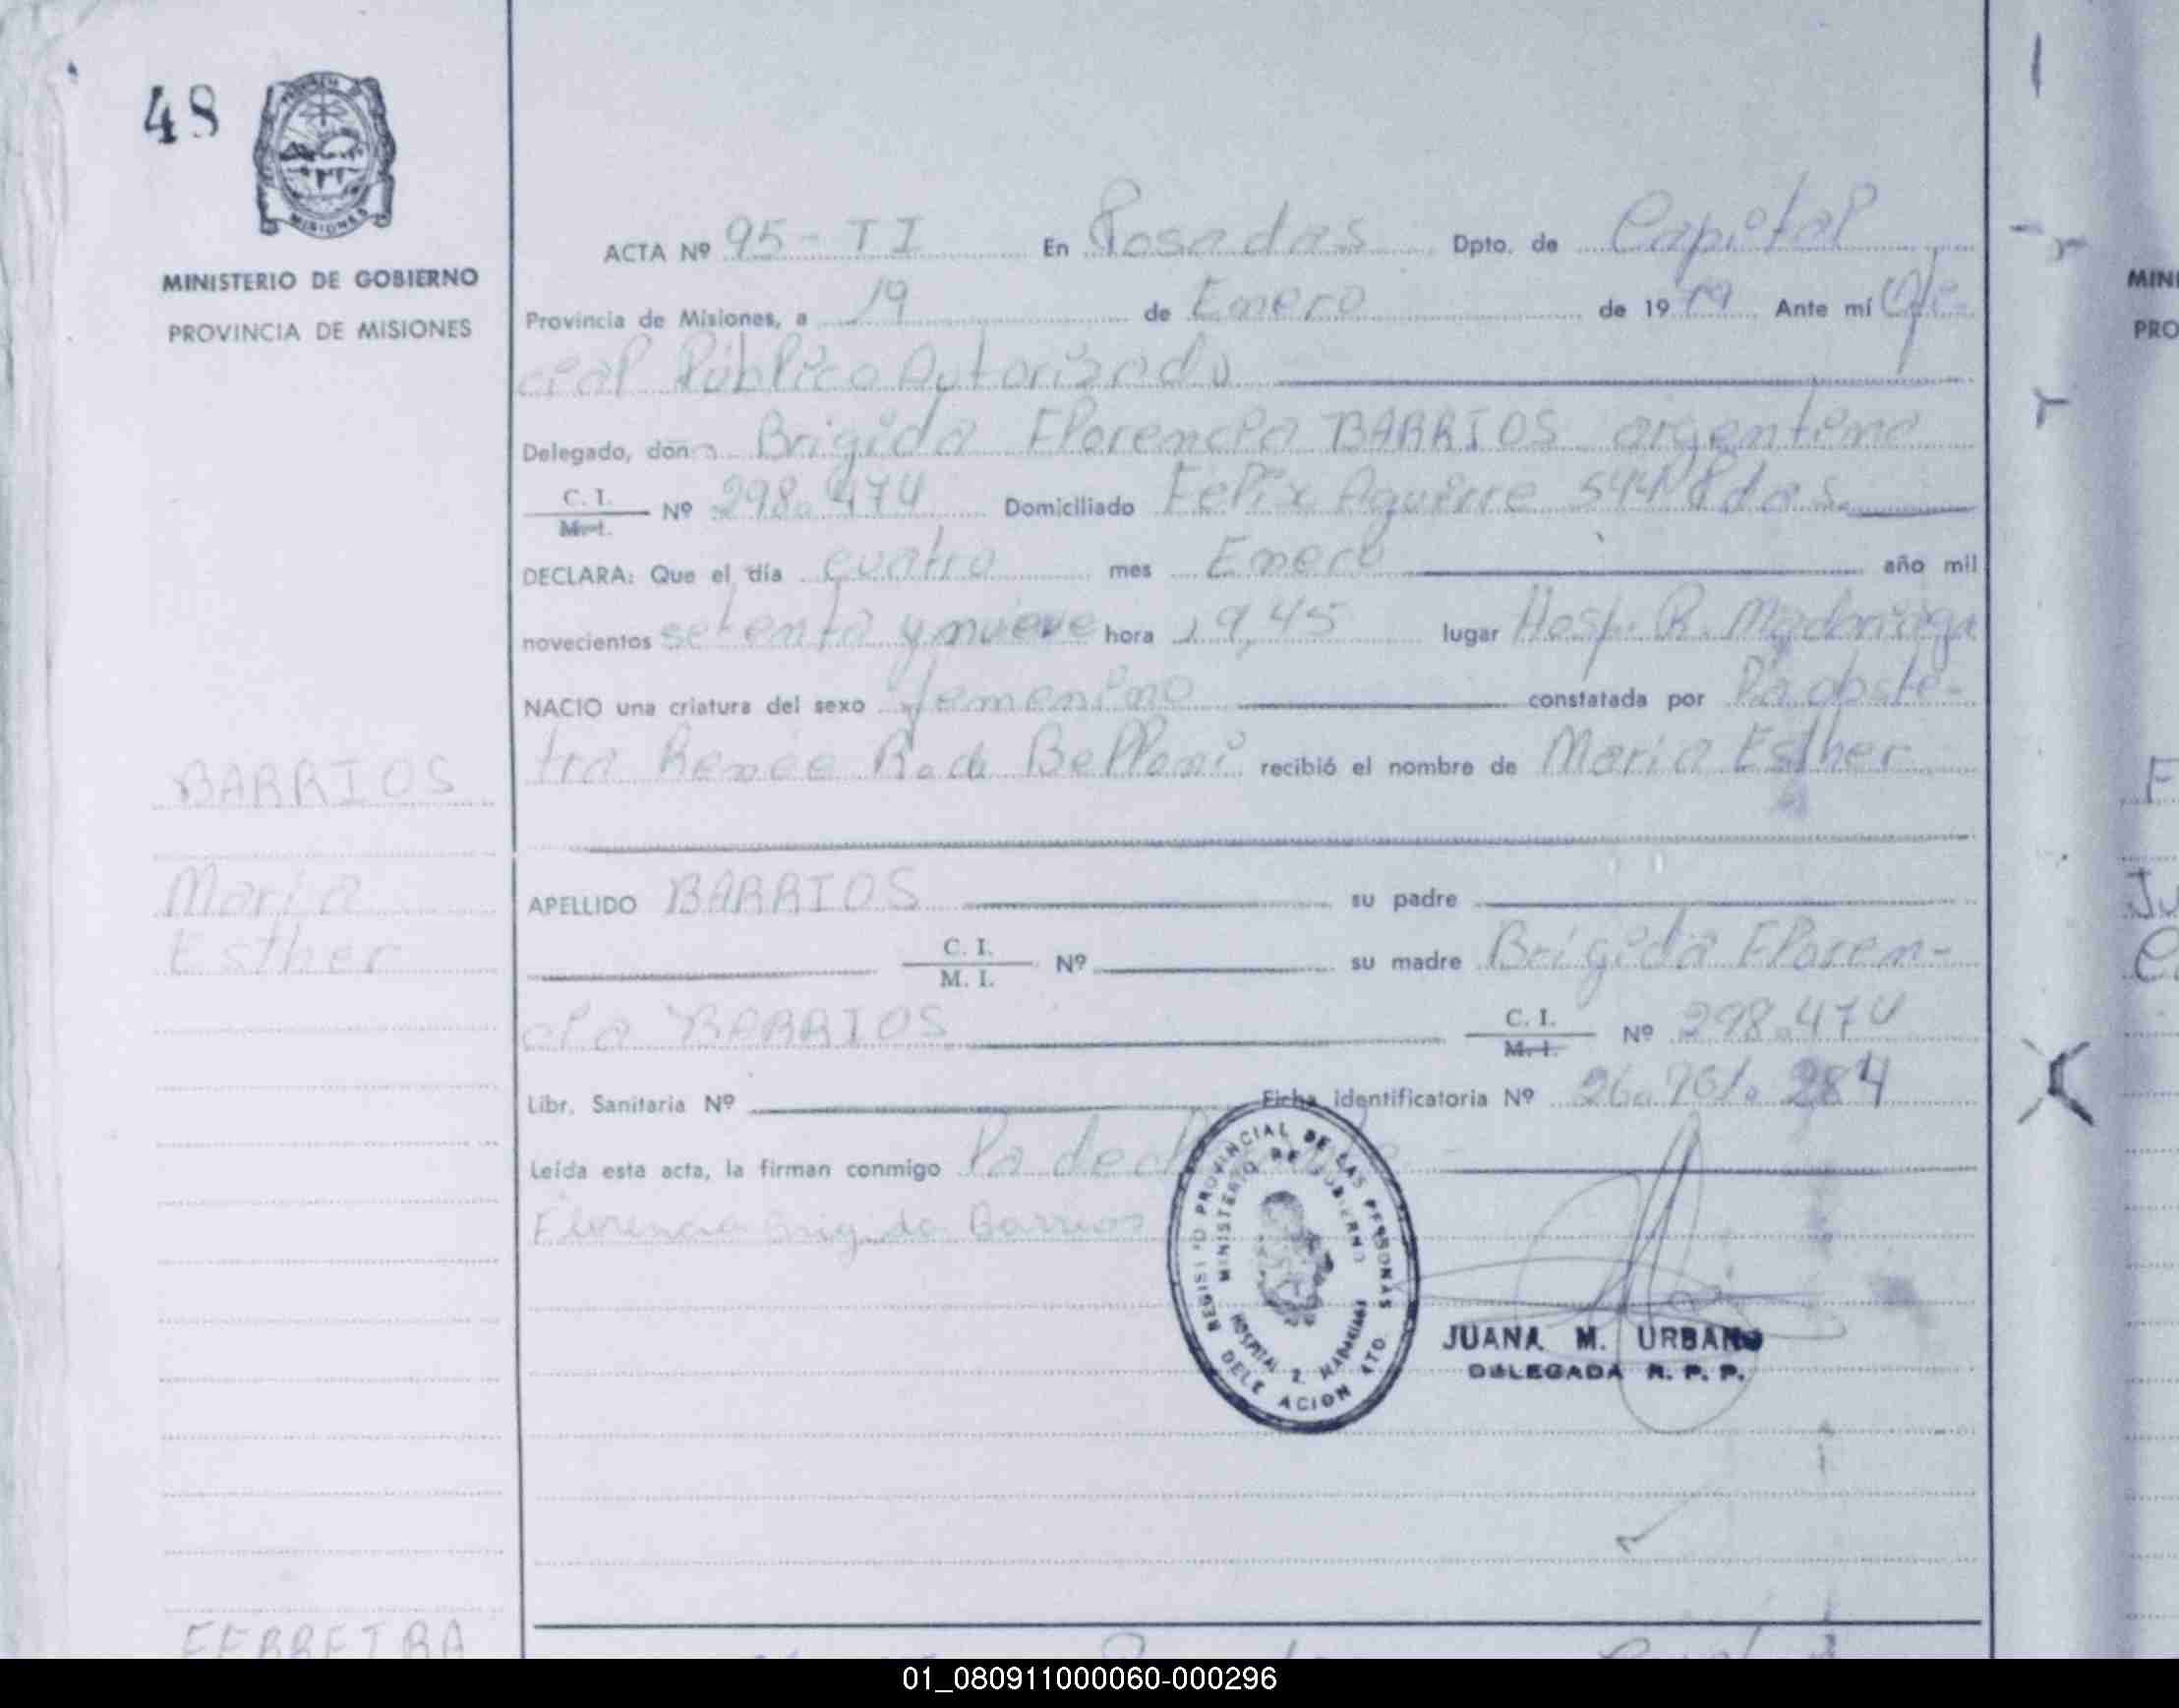 48
PROVINCIA DE
MISIONES
MINISTERIO DE GOBIERNO
PROVINCIA DE MISIONES
ACTA Nº 95-TI En Posadas Dpto. de Capital
Provincia de Misiones, a 19 de Enero de 1979 Ante mí Ofi-
cial Público Autorizado
Delegado, don a Brigida Florencia BARRIOS argentina
C. I. / M. I. Nº 298.474 Domiciliado Felix Aguirre 544 Pdas.
DECLARA: Que el día cuatro mes Enero año mil
novecientos setenta y nueve hora 19,45 lugar Hosp. R. Madariaga
NACIO una criatura del sexo femenino constatada por la obste-
tra Renee R. de Belloni recibió el nombre de Maria Esther
BARRIOS
Maria
Esther
APELLIDO BARRIOS su padre
C. I. / M. I. Nº su madre Brigida Floren-
cia BARRIOS C. I. / M. I. Nº 298.474
Libr. Sanitaria Nº Ficha identificatoria Nº 26.761.284
Leída esta acta, la firman conmigo la
Florencia Brigida Barrios
REGISTRO PROVINCIAL DE LAS PERSONAS
MINISTERIO DE GOBIERNO
HOSPITAL MADARIAGA
JUANA M. URBANO
DELEGADA R. P. P.
FERREIRA
MINI
PRO
01_080911000060-000296